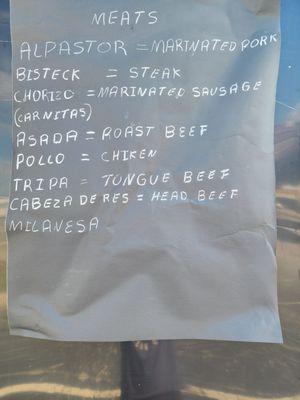 MEATS
ALPASTOR = MARINATED PORK
BISTECK = STEAK
CHORIZO = MARINATED SAUSAGE
(CARNITAS)
ASADA = ROAST BEEF
POLLO = CHIKEN
TRIPA = TONGUE BEEF
CABEZA DE RES = HEAD BEEF
MILANESA